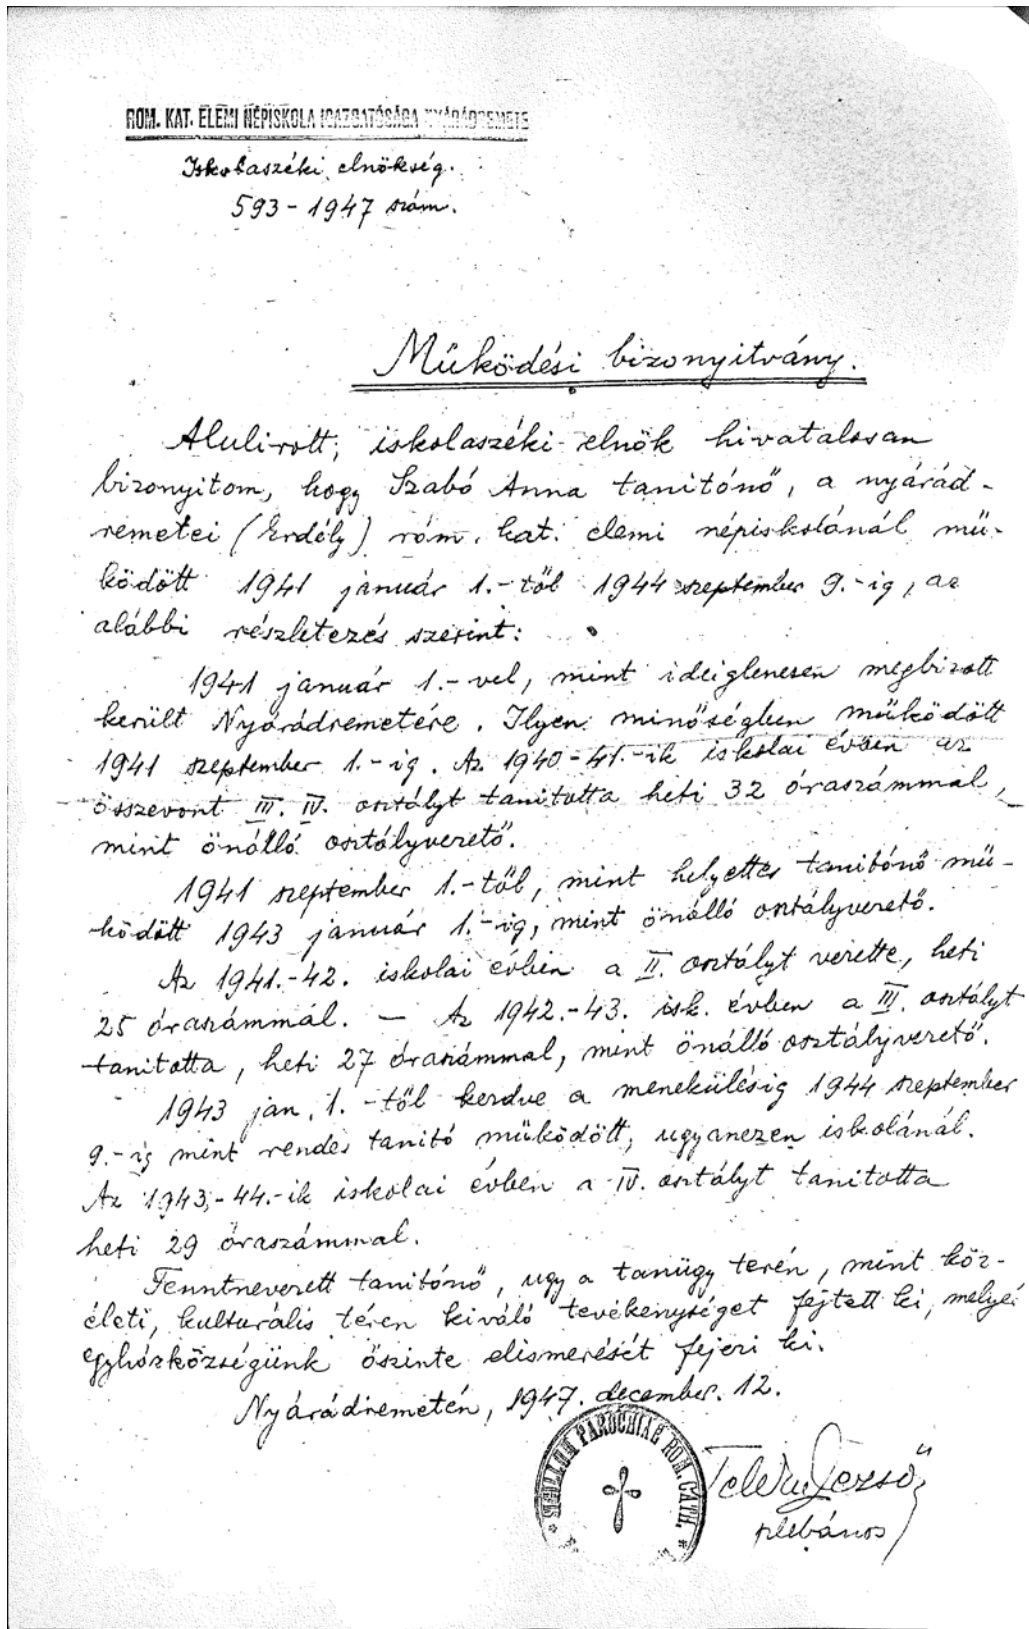 ROM. KAT. ELEMI NÉPISKOLA IGAZGATÓSÁGA NYÁRÁDREMETE
Iskolaszéki elnökség.
593 - 1947 szám.
Működési bizonyitvány.
Alulirott, iskolaszéki elnök hivatalosan
bizonyitom, hogy Szabó Anna tanitónő, a nyárád-
remetei (Erdély) róm. kat. elemi népiskolánál mü-
ködött 1941 január 1.-től 1944 szeptember 9.-ig, az
alábbi részletezés szerint:
1941 január 1.-vel, mint ideiglenesen megbizott
került Nyárádremetére. Ilyen minőségben működött
1941 szeptember 1.-ig. Az 1940-41.-ik iskolai évben az
összevont III. IV. osztályt tanitotta heti 32 óraszámmal,
mint önálló osztályvezető.
1941 szeptember 1.-től, mint helyettes tanitónő mü-
ködött 1943 január 1.-ig, mint önálló osztályvezető.
Az 1941.-42. iskolai évben a II. osztályt vezette, heti
25 óraszámmal. — Az 1942.-43. isk. évben a III. osztályt
tanitotta, heti 27 óraszámmal, mint önálló osztályvezető.
1943 jan. 1.-től kezdve a menekülésig 1944 szeptember
9.-ig mint rendes tanitó működött, ugyanezen iskolánál.
Az 1943.-44.-ik iskolai évben a IV. osztályt tanitotta
heti 29 óraszámmal.
Fenntnevezett tanitónő, ugy a tanügy terén, mint köz-
életi, kulturális téren kiváló tevékenységet fejtett ki, melyé
egyházközségünk őszinte elismerését fejezi ki.
Nyárádremetén, 1947. december. 12.
SIGILLUM PAROCHIAE ROM. CATH.
Dezső
plébános